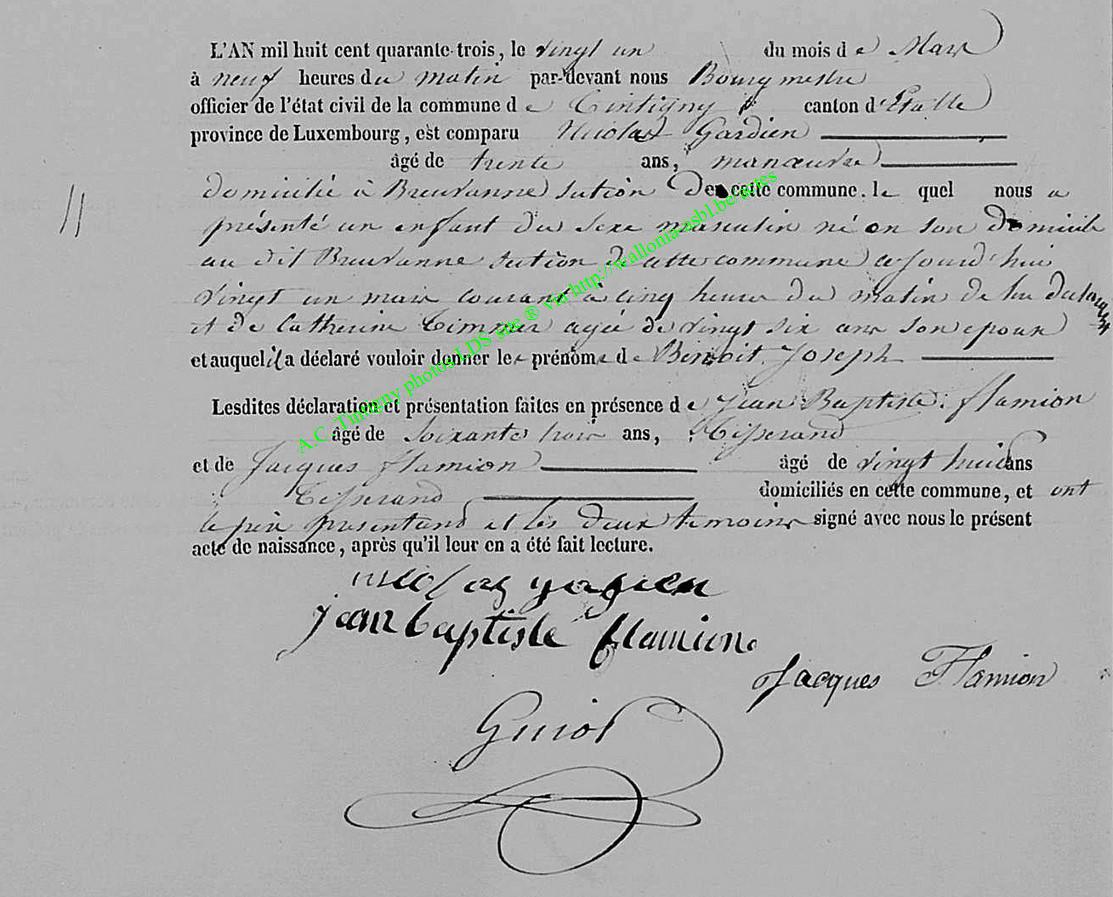 L'AN mil huit cent quarante-trois, le vingt un du mois de Mars
à neuf heures du matin par-devant nous Bourgmestre
officier de l'état civil de la commune de Tintigny canton d'Etalle
province de Luxembourg, est comparu Nicolas Gardien
âgé de trente ans, manœuvre
domicilié à Breuvanne section De cette commune. le quel nous a
présenté un enfant du sexe masculin né en son Domicile
au dit Breuvanne section de cette commune cejourd'hui
vingt un mars courant à cinq heure du matin de lui
et de Catherine Timmer agée de vingt six ans son epouse
et auquel il a déclaré vouloir donner les prénoms de Benoit Joseph
Lesdites déclaration et présentation faites en présence de Jean Baptiste flamion
âgé de soixante trois ans, Tisserand
et de Jacques flamion âgé de vingt huit ans
Tisserand domiciliés en cette commune, et ont
le père présentand et les deux temoins signé avec nous le présent
acte de naissance, après qu'il leur en a été fait lecture.
jean baptiste flamion
Jacques Flamion
Guiot
A.C. Tintigny photos LDS site ® via http://wallonia-asbl.be/actes
11